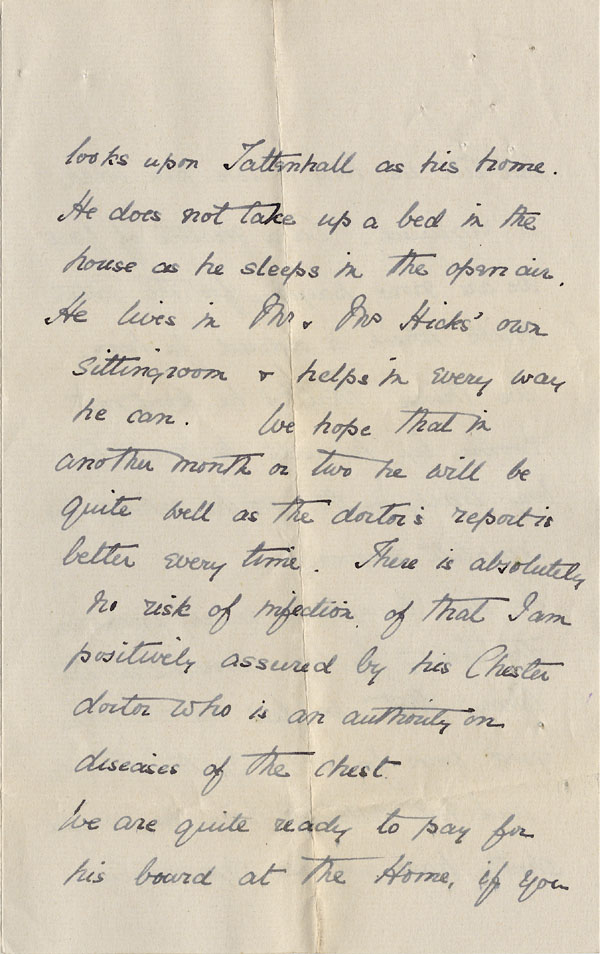 looks upon Tattenhall as his home.
He does not take up a bed in the
house as he sleeps in the open air.
He lives in Mr & Mrs Hicks' own
sittingroom & helps in every way
he can. We hope that in
another month or two he will be
quite well as the doctor's report is
better every time. There is absolutely
no risk of infection, of that I am
positively assured by his Chester
doctor who is an authority on
diseases of the chest.
We are quite ready to pay for
his board at the Home, if you